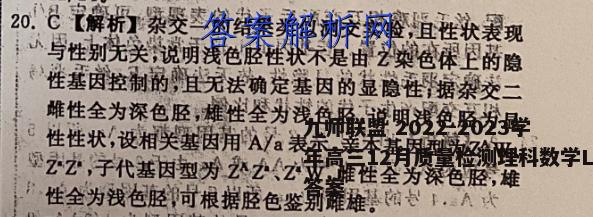 20. C【解析】杂交一的结果类似测交实验,且性状表现
与性别无关,说明浅色胫性状不是由 Z 染色体上的隐
性基因控制的,且无法确定基因的显隐性;据杂交二
雌性全为深色胫,雄性全为浅色胫,说明浅色胫为显
性性状,设相关基因用 A/a 表示,亲本基因型为
子代基因型为 雌性全为深色胫,雄
性全为浅色胫,可根据胫色鉴别雌雄。
答案解析网
九师联盟 2022-2023学
年高三12月质量检测理科数学L
答案